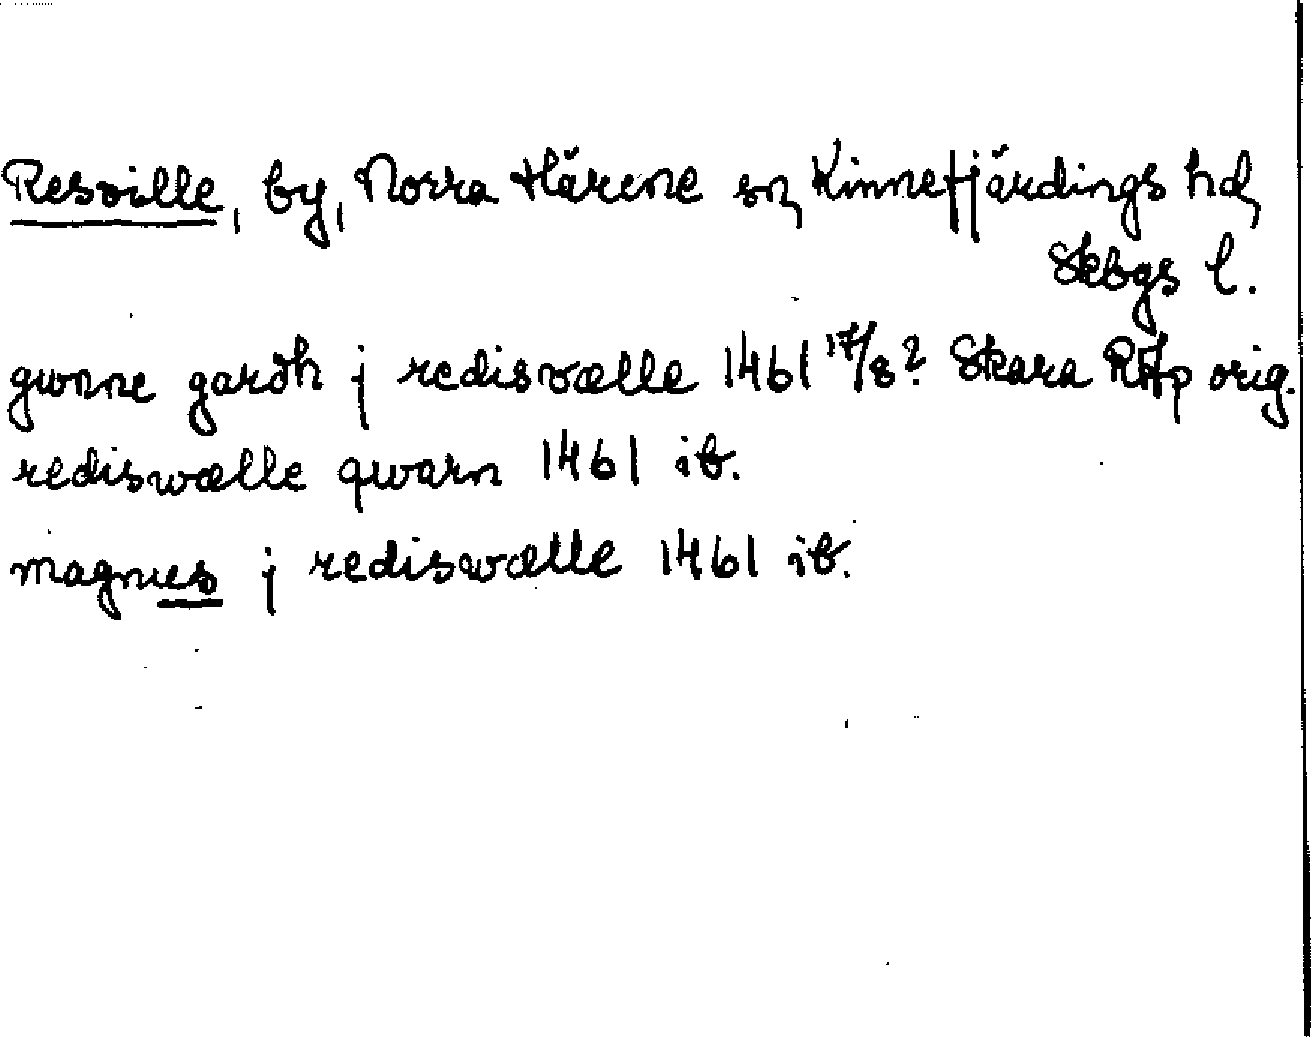 Resville, by, Norra Härene sn, Kinnefjärdings hd,
Skbgs l.
gwnne gardh j rediswælle 1461 17/8? Skara RAp orig.
rediswælle qwarn 1461 ib.
magnus j rediswælle 1461 ib.